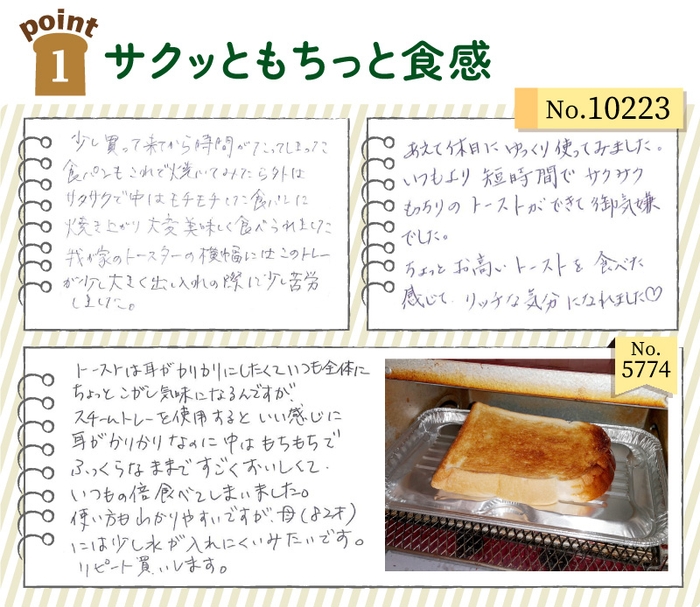 point
1
サクッともちっと食感
No.10223
少し買って来てから時間がたってしまった
食パンもこれで焼いてみたら外は
サクサクで中はモチモチした食パンに
焼き上がり大変美味しく食べられました
我が家のトースターの横幅にはこのトレー
が少し大きく出し入れの際に少し苦労
しました。
あえて休日にゆっくり使ってみました。
いつもより短時間でサクサク
もっちりのトーストができて御気嫌
でした。
ちょっとお高いトーストを食べた
感じで、リッチな気分になれました♡
No.
5774
トーストは耳がかりかりにしたくていつも全体に
ちょっとこがし気味になるんですが、
スチームトレーを使用するといい感じに
耳がかりかりなのに中はもちもちで
ふっくらなままですごくおいしくて、
いつもの倍食べてしまいました。
使い方もわかりやすいですが、母(82才)
には少し水が入れにくいみたいです。
リピート買いします。